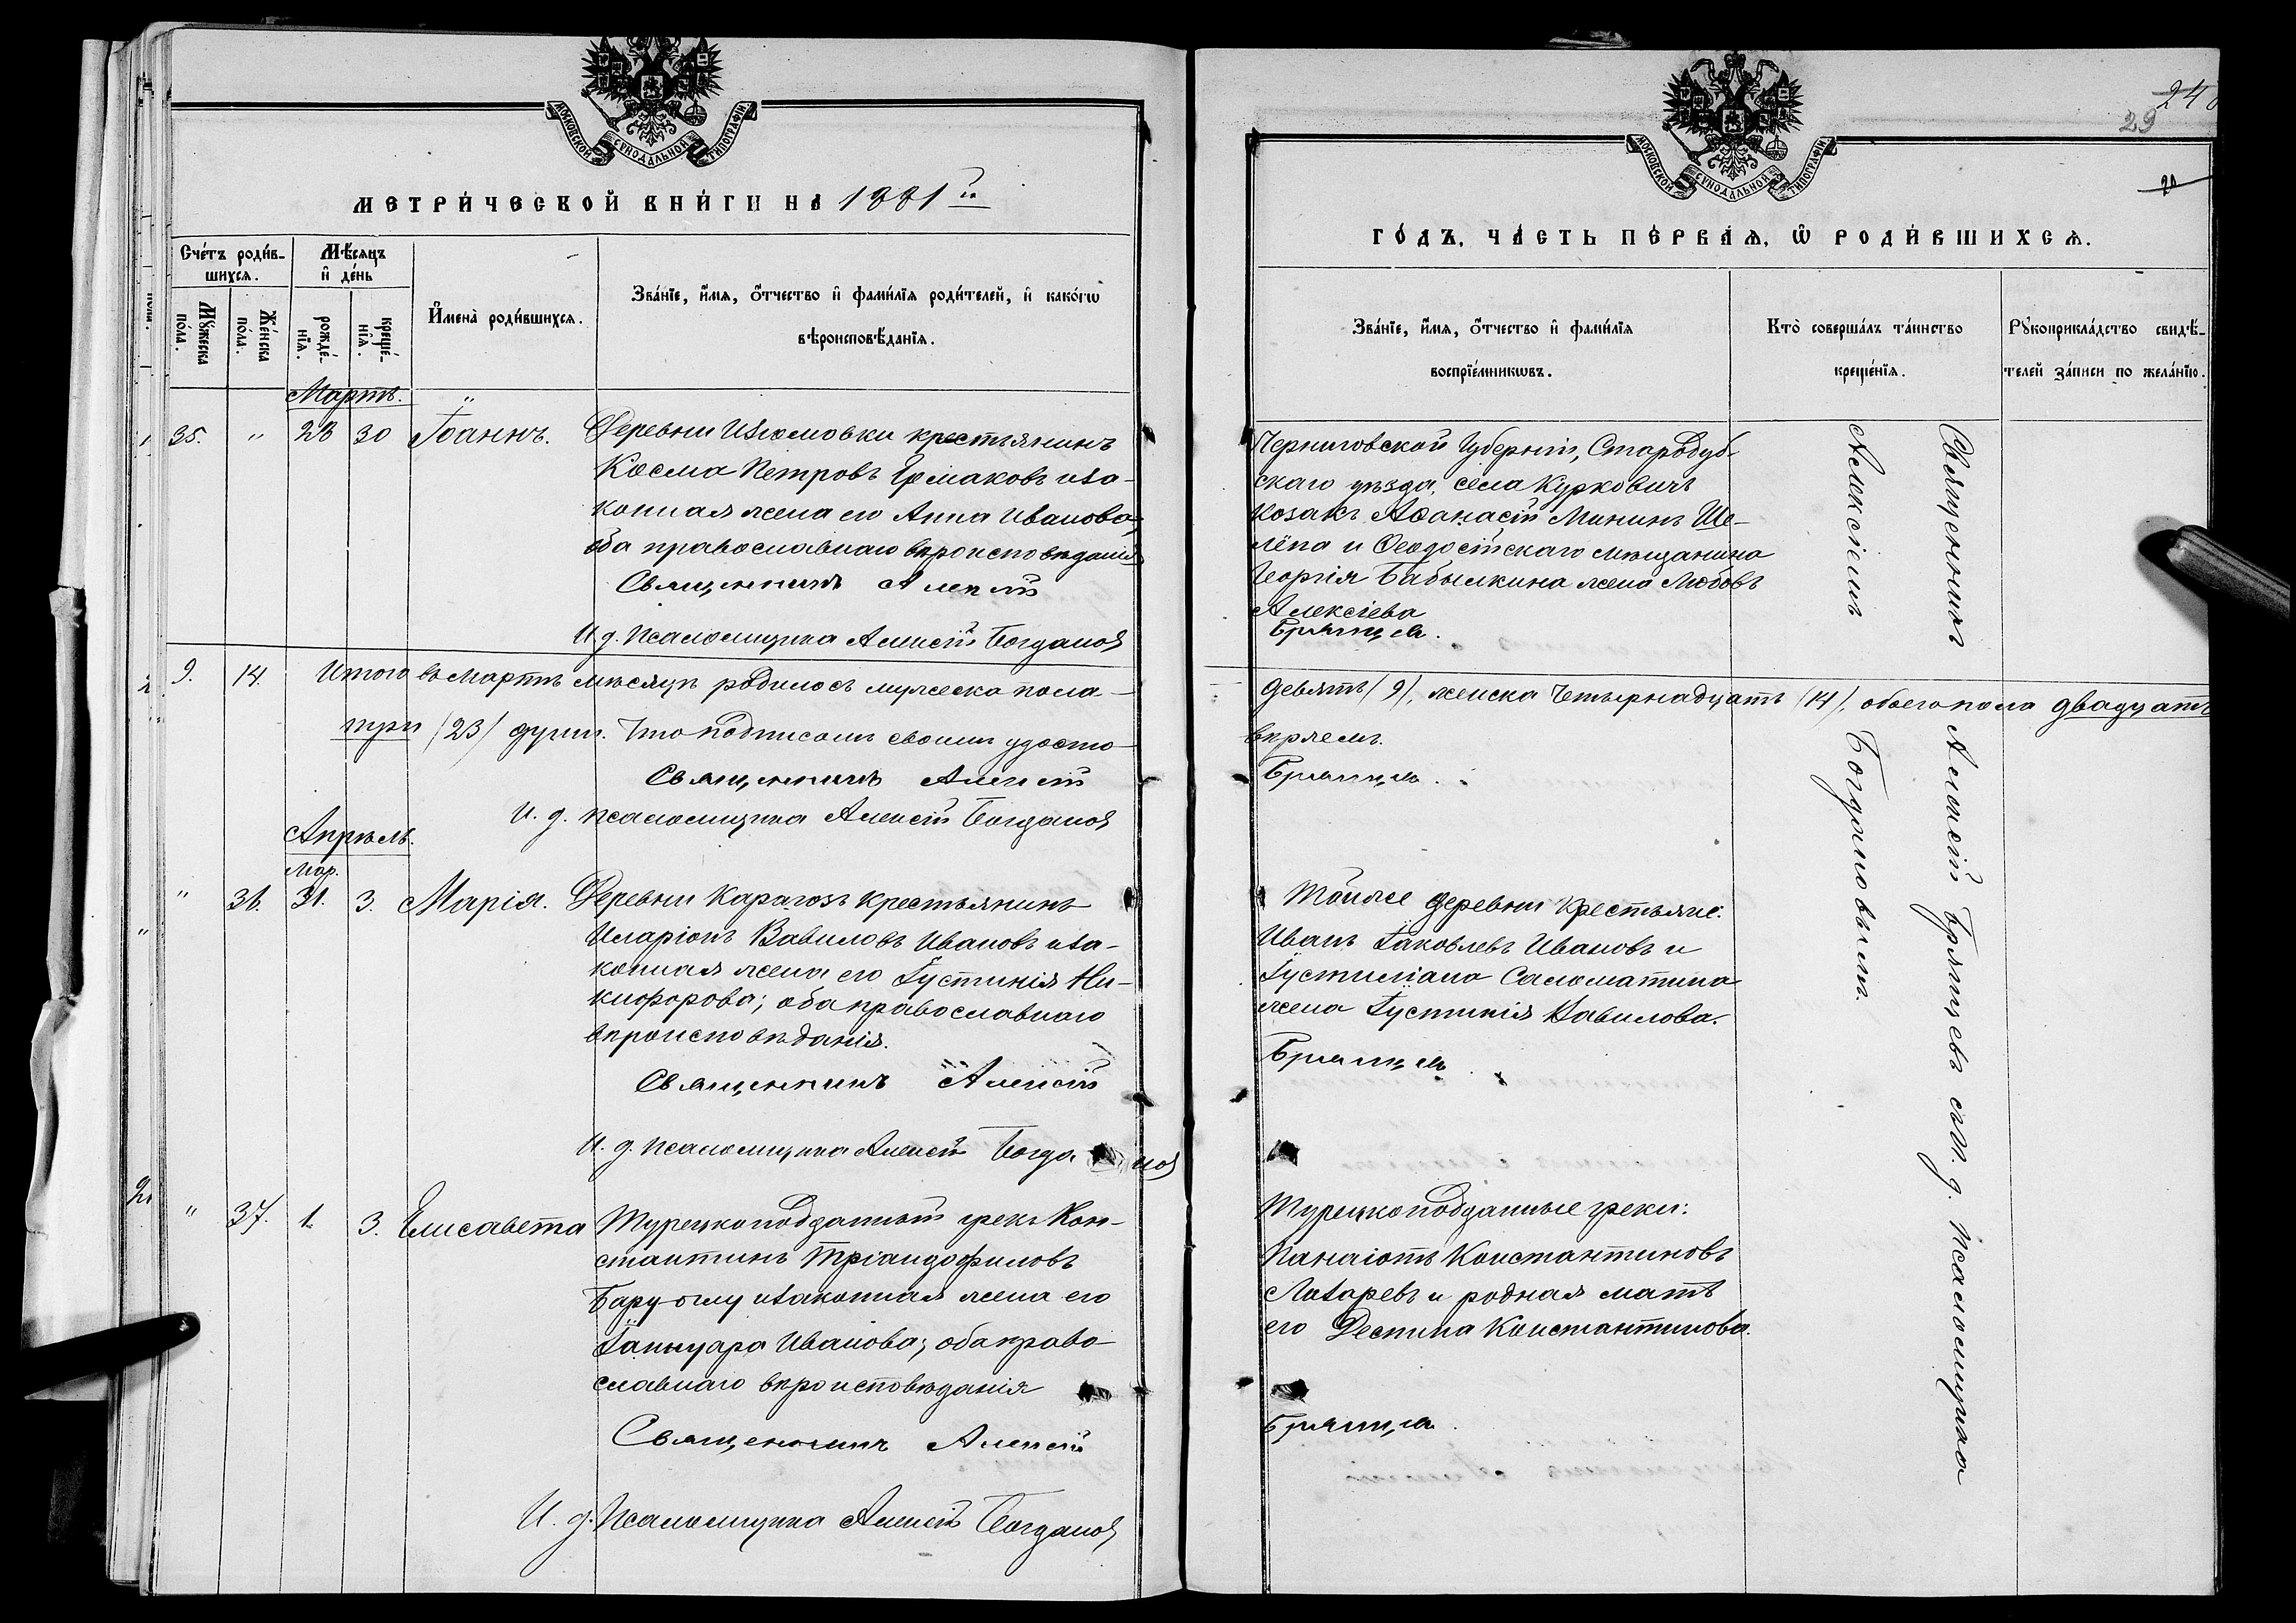 МОСКОВСКОЙ СѴНОДАЛЬНОЙ ТИПОГРАФІИ
МЕТРИ́ЧЕСКОЙ КНИ́ГИ НА 1881й
Сче́тъ роди́в-
шихся.
Мѣ́сяцъ
и҆ де́нь
Му́жеска по́ла.
Же́нска по́ла.
рожде́-нїя.
креще́-нїя.
И҆мена̀ роди́вшихся.
Зва́нїе, и҆́мя, ѻ҆́тчество и҆ фами́лїя роди́телей, и҆ како́гѡ
вѣроисповѣ́данїя.
Мартъ.
35. " 28 30 Іоаннъ. Деревни Изюмовки крестьянинъ
Косма Петровъ Ермаковъ иза-
конная жена его Анна Иванова;
оба православнаго вѣроисповѣданія
Священникъ Алексій
И. д. Псаломщика Алексій Богданов
9. 14. Итого въ Мартѣ мѣсяцѣ родилось мужеска пола
три (23) души. Что подписомъ своимъ удосто-
Священникъ Алексій
И. д. Псаломщика Алексій Богданов
Апрѣль.
Мар.
" 36. 31. 3. Марія. Деревни Карагозъ крестьянинъ
Иларіонъ Вавиловъ Ивановъ иза-
конная жена его Іустинія Ни-
кифорова; оба православнаго
вѣроисповѣданія.
Священникъ Алексій
И. д. Псаломщика Алексій Богданов
" 37. 1. 3. Елисавета Турецкоподданный грекъ Кон-
стантинъ Тріандофиловъ
Бару-оглу изаконная жена его
Іануара Иванова; оба право-
славнаго вѣроисповѣданія
Священникъ Алексій
И. д. Псаломщика Алексій Богданов
МОСКОВСКОЙ СѴНОДАЛЬНОЙ ТИПОГРАФІИ
24
29
20
ГО́ДЪ, ЧА́СТЬ ПЕ́РВАЯ, Ѡ РОДИ́ВШИХСЯ.
Зва́нїе, и҆́мя, ѻ҆́тчество и҆ фами́лїя
воспрїе́мникѡвъ.
Кто̀ соверша́лъ та́инство
креще́нїя.
Рꙋкоприкла́дство свидѣ́-
телей за́писи по жела́нїю.
Черниговской Губерніи, Стародуб-
скаго уѣзда, села Курковичъ
козакъ Аѳанасій Мининъ Ше-
лёпа и Ѳеодосійскаго мѣщанина
Георгія Бабылкина жена Любовъ
Алексіева
Брянцев.
девять (9), женска Четырнадцать (14), обоего пола двадцать
вѣряемъ.
Брянцев.
Тойже деревни крестьяне:
Иванъ Іаковлевъ Ивановъ и
Іустиніана Саломатина
жена Іустинія Вавилова.
Брянцев
Турецкоподданные греки:
Панаіотъ Константиновъ
Лазаревъ и родная мать
его Деспина Константинова.
Брянцев.
Священникъ Алексій Брянцевъ съ И. д. Псаломщика
Алексіемъ Богдановымъ.